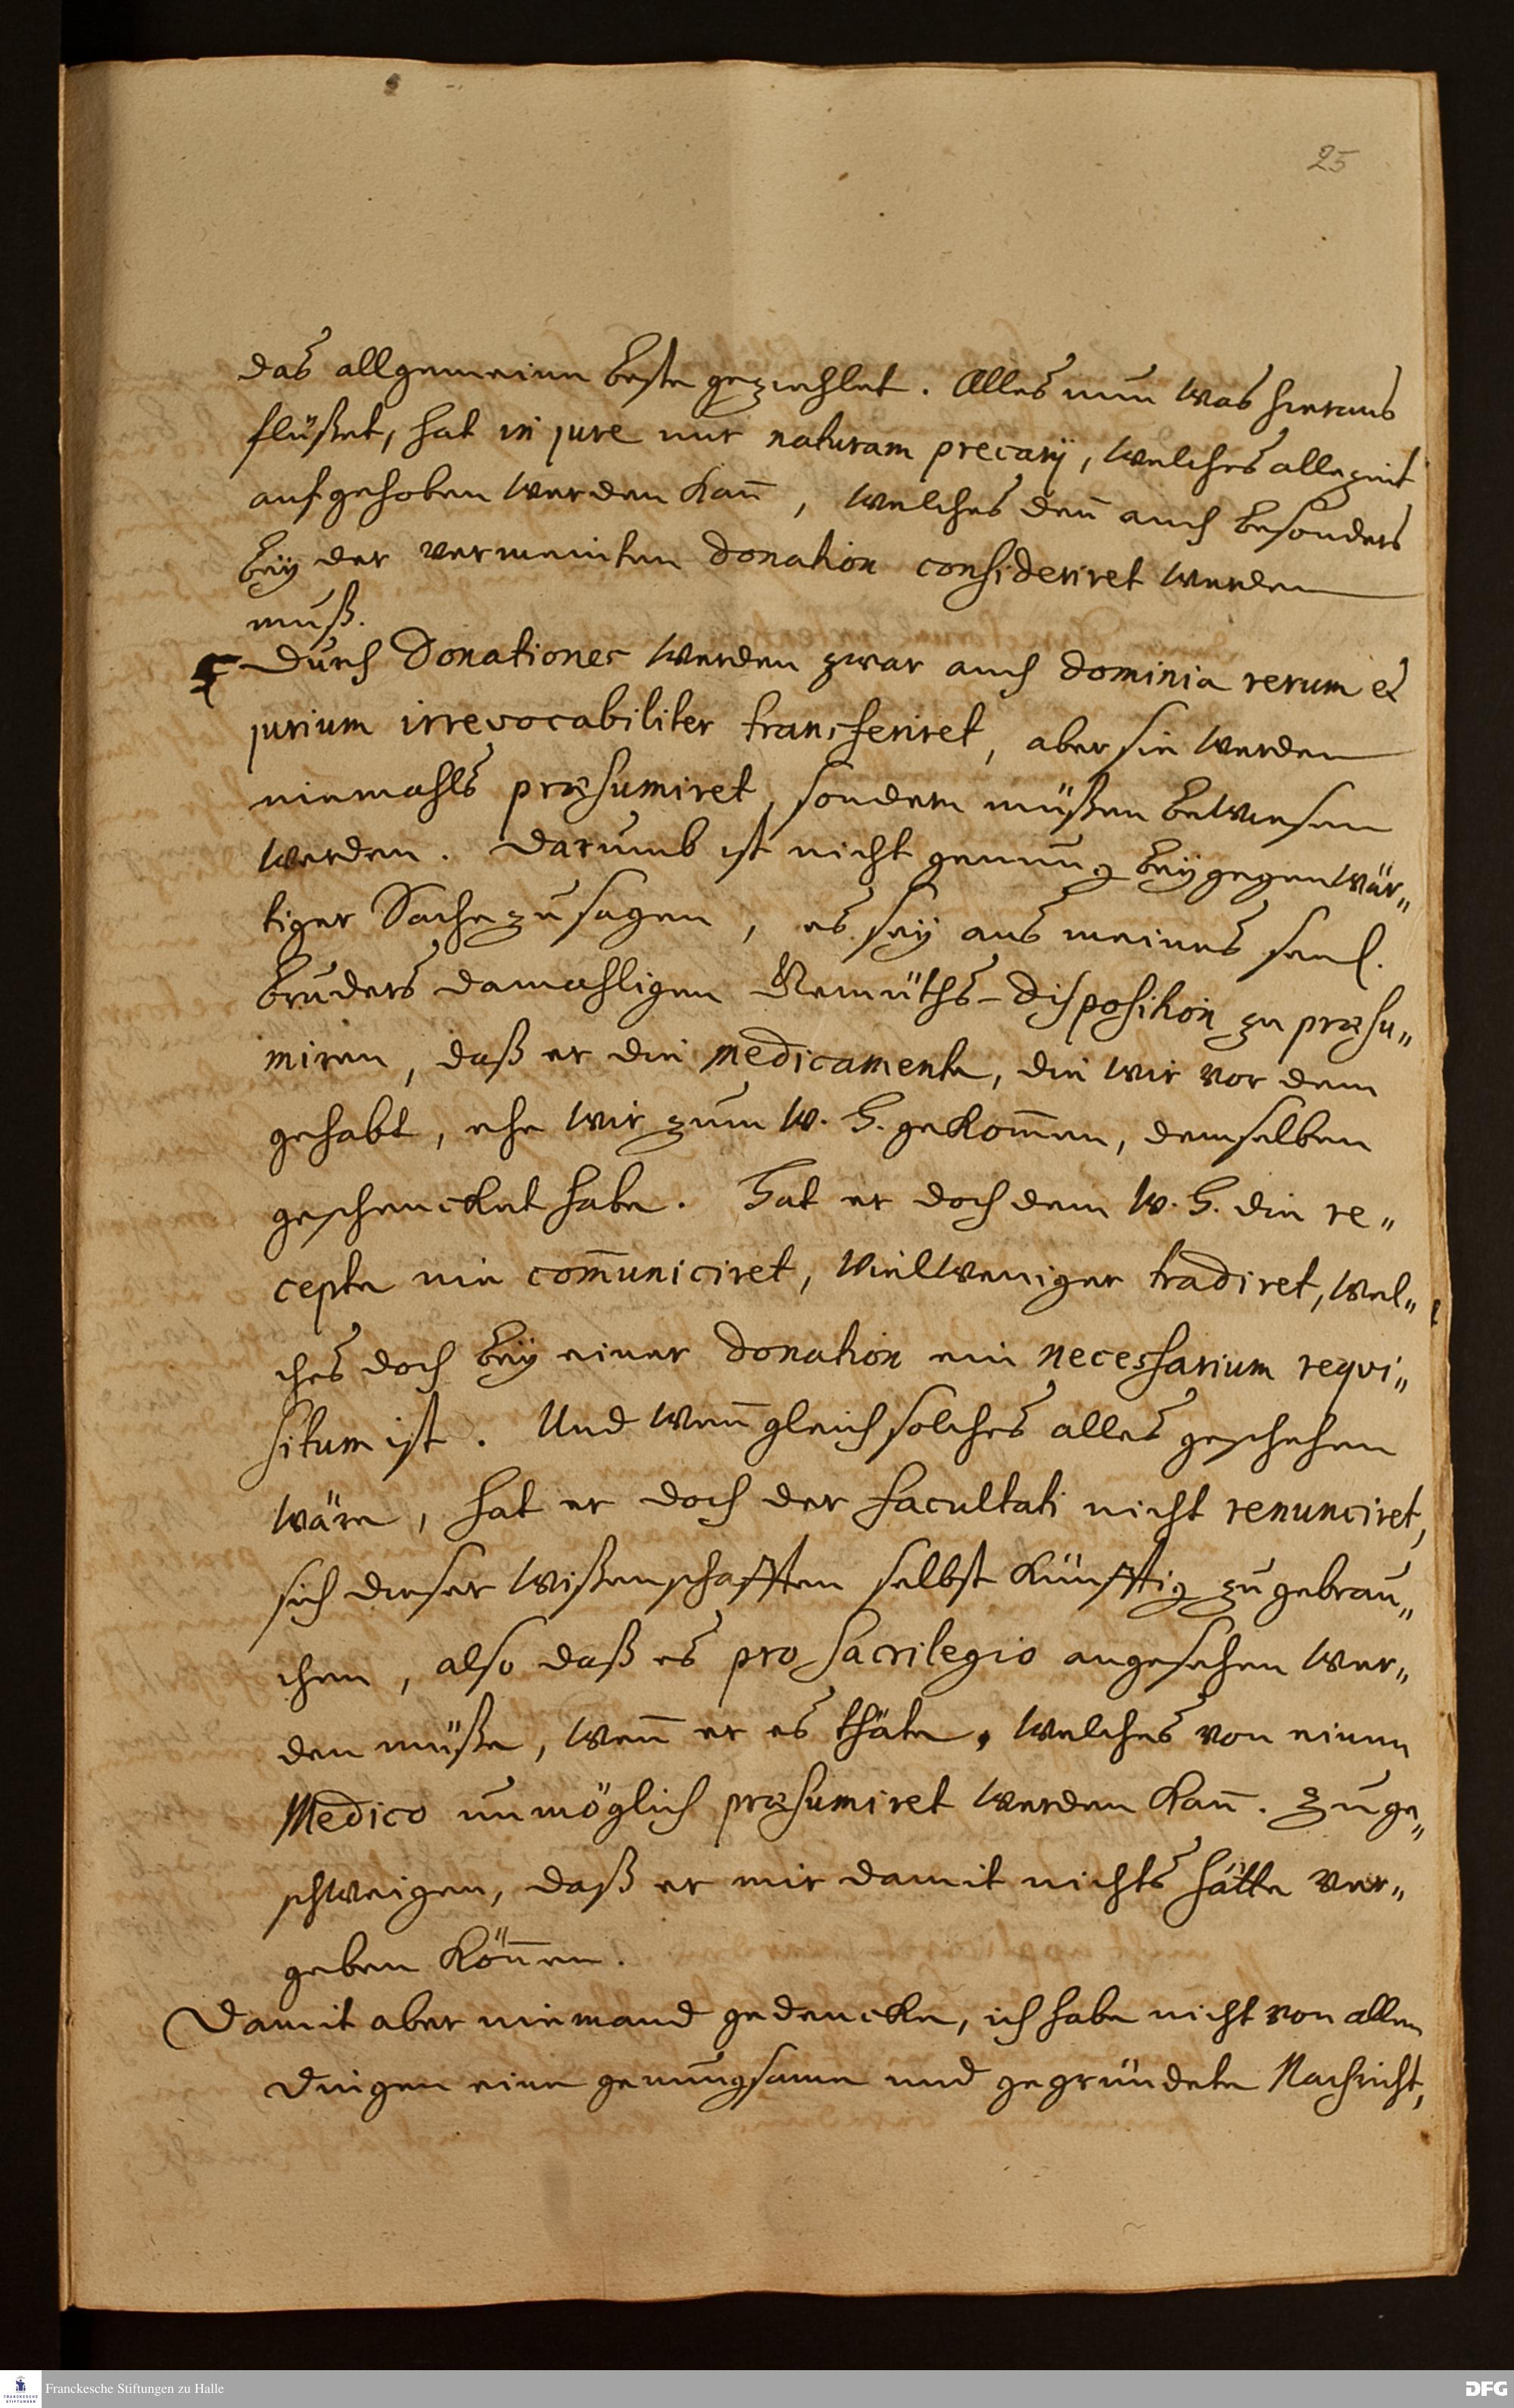 25
das allgemeine beste gezielet. Alles nun was hieraus
flüßet, hat in jure nur naturam precarij, welches allezeit
aufgehoben werden kan̄, welches den̄ auch besonders
beÿ der vermeinten donation consideriret werden
muß.
Durch Donationes werden zwar auch dominia rerum et
jurium irrevocabiliter transferiret, aber sie werden
niemahls præsumiret, sondern müßen bewiesen
werden. Darumb ist nicht genung beÿ gegenwär„
tiger Sache zu sagen, es seÿ aus meines seel.
bruders damahligen Gemüths-disposition zu præsu„
miren, daß er die medicamente, die wir vor dem
gehabt, ehe wir zum W. H. gekom̄en, demselben
geschencket habe. Hat er doch dem W. H. die re„
cepte nie com̄uniciret, vielweniger tradiret, wel„
ches doch beÿ einer donation ein necessarium reqvi„
situm ist. Und wen̄ gleich solches alles geschehen
wäre, hat er doch der facultati nicht renunciret,
sich dieser wißenschafften selbst künfftig zu gebrau„
chen, also daß es pro sacrilegio angesehen wer„
den müße, wen̄ er es thäte, welches von einem
Medico unmöglich præsumiret werden kan̄. Zuge„
schweigen, daß er mir damit nichts hätte ver„
geben kön̄en.
Damit aber niemand gedencke, ich habe nicht von allen
dingen eine genungsame und gegründete Nachricht,
Franckesche Stiftungen zu Halle
DFG